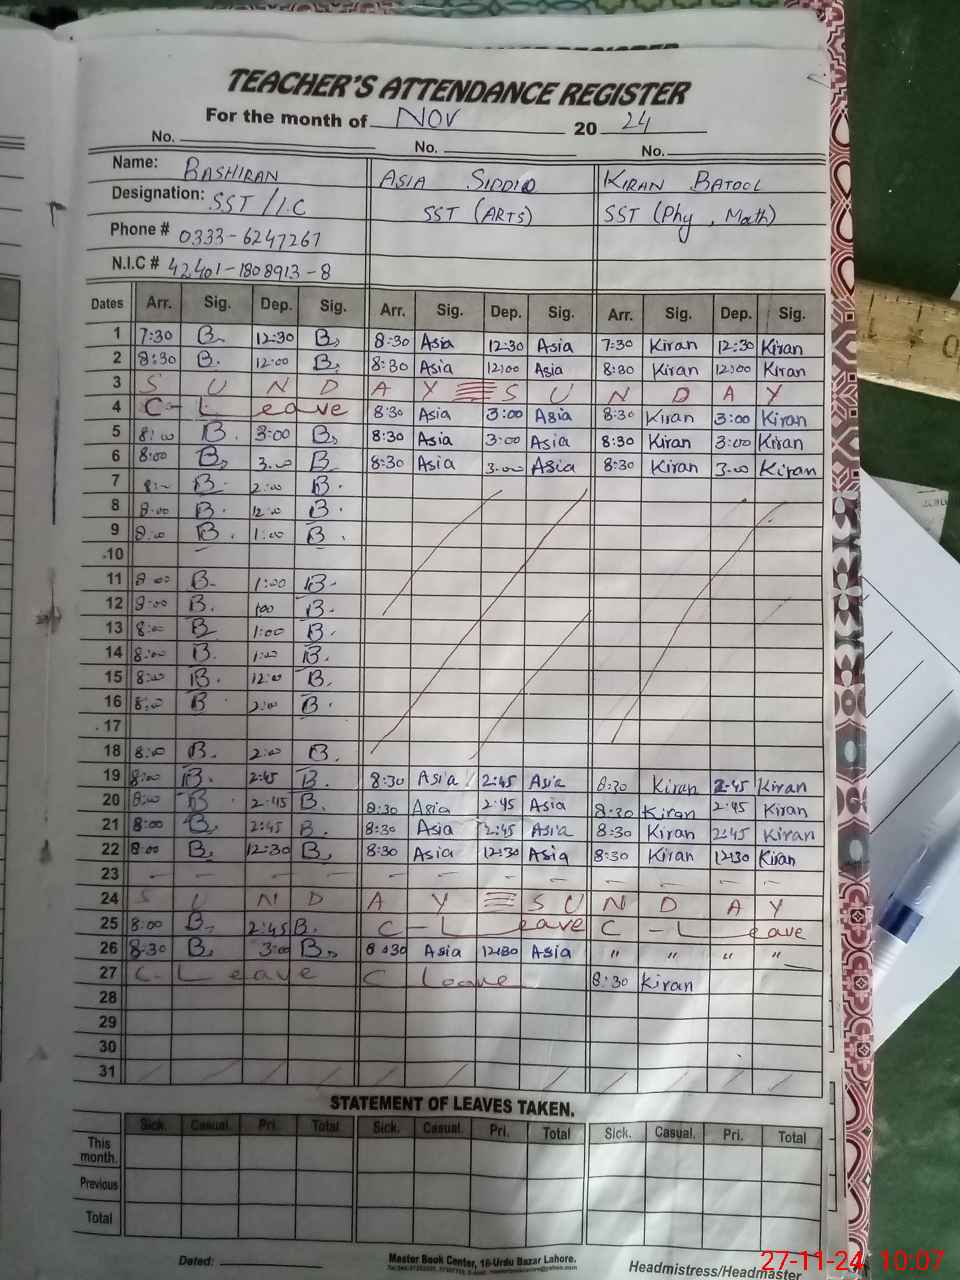 TEACHER'S ATTENDANCE REGISTER
For the month of NOV 20 24
No. No. No.
Name: BASHIRAN ASIA SIDDIQ KIRAN BATOOL
Designation: SST/I.C SST (ARTS) SST (Phy, Math)
Phone # 0333-6247267
N.I.C # 42401-1808913-8
Dates Arr. Sig. Dep. Sig. Arr. Sig. Dep. Sig. Arr. Sig. Dep. Sig.
1 7:30 B. 12:30 B. 8:30 Asia 12:30 Asia 7:30 Kiran 12:30 Kiran
2 8:30 B. 12:00 B. 8:30 Asia 12:00 Asia 8:30 Kiran 12:00 Kiran
3 S U N D A Y S U N D A Y
4 C-Leave 8:30 Asia 3:00 Asia 8:30 Kiran 3:00 Kiran
5 8:00 B. 3:00 B. 8:30 Asia 3:00 Asia 8:30 Kiran 3:00 Kiran
6 8:00 B. 3.00 B 8:30 Asia 3.00 Asia 8:30 Kiran 3.00 Kiran
7 8:00 B. 2:00 B.
8 8:00 B. 12:00 B.
9 8:00 B. 1:00 B.
10
11 8:00 B. 1:00 B.
12 8:00 B. 1:00 B.
13 8:00 B 1:00 B.
14 8:00 B. 1:00 B.
15 8:00 B. 12:00 B.
16 8:00 B 2:00 B.
17
18 8:00 B. 2:00 B.
19 8:00 B. 2:45 B. 8:30 Asia 2:45 Asia 8:30 Kiran 2:45 Kiran
20 8:00 B. 2:45 B. 8:30 Asia 2:45 Asia 8:30 Kiran 2:45 Kiran
21 8:00 B. 2:45 B. 8:30 Asia 2:45 Asia 8:30 Kiran 2:45 Kiran
22 8:00 B. 12:30 B. 8:30 Asia 12:30 Asia 8:30 Kiran 12:30 Kiran
23 - - - - - - - - - - - -
24 S U N D A Y S U N D A Y
25 8:00 B. 2:45 B. C-Leave C-Leave
26 8:30 B. 3:00 B. 8:30 Asia 12:30 Asia " " " "
27 C-Leave C Leave 8:30 Kiran
28
29
30
31
STATEMENT OF LEAVES TAKEN.
Sick. Casual. Pri. Total Sick. Casual. Pri. Total Sick. Casual. Pri. Total
This month.
Previous
Total
Dated:
Master Book Center, 16-Urdu Bazar Lahore.
Headmistress/Headmaster
27-11-24 10:07